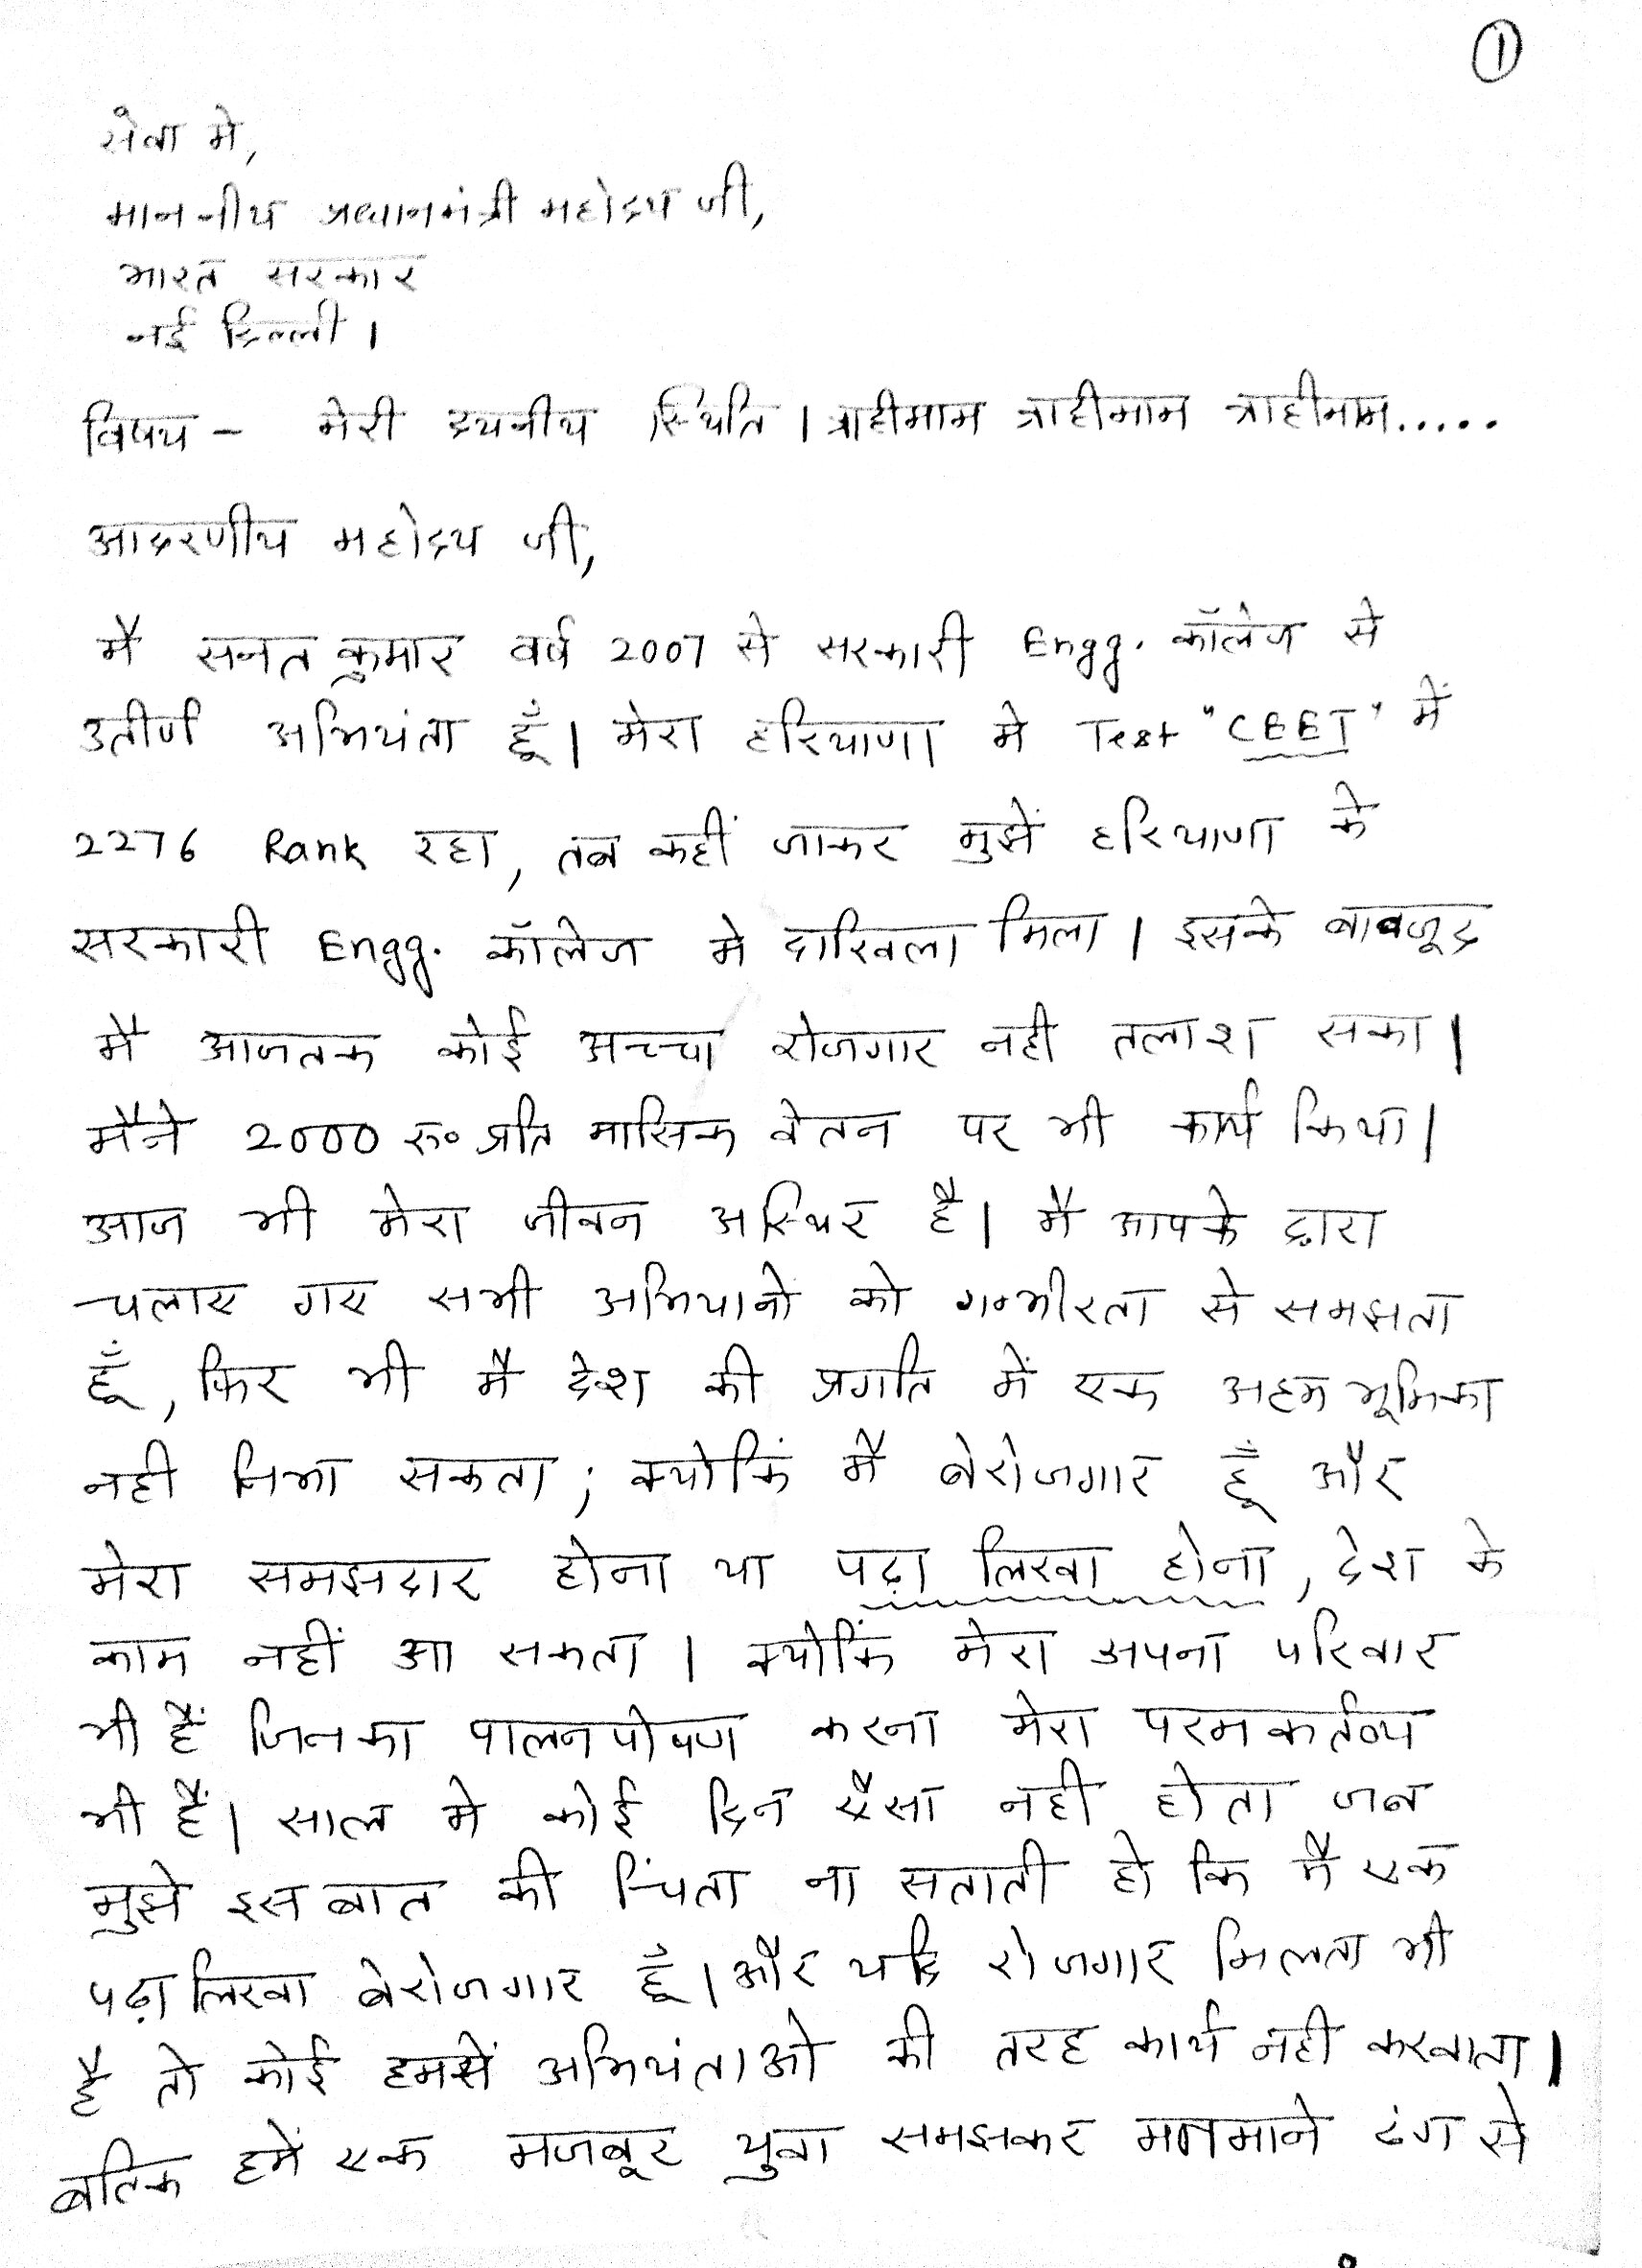 ①
सेवा मे,
माननीय प्रधानमंत्री महोदय जी,
भारत सरकार
नई दिल्ली ।
विषय - मेरी दयनीय स्थिति । त्राहीमाम त्राहीमाम त्राहीमाम.....
आदरणीय महोदय जी,
मै सनत कुमार वर्ष 2007 से सरकारी Engg. कॉलेज से
उतीर्ण अभियंता हूँ। मेरा हरियाणा मे Test "CEET" में
2276 Rank रहा, तब कहीं जाकर मुझें हरियाणा के
सरकारी Engg. कॉलेज मे दाखिला मिला । इसके बावजूद
मै आजतक कोई अच्चा रोजगार नही तलाश सका।
मैने 2000 रु० प्रति मासिक वेतन पर भी कार्य किया।
आज भी मेरा जीवन अस्थिर है। मै आपके द्वारा
चलाए गए सभी अभियानो को गम्भीरता से समझता
हूँ, फिर भी मै देश की प्रगति में एक अहम भूमिका
नही निभा सकता ; क्योकिं मै बेरोजगार हूँ और
मेरा समझदार होना या पढ़ा लिखा होना, देश के
काम नहीं आ सकता । क्योकिं मेरा अपना परिवार
भी हैं जिनका पालनपोषण करना मेरा परमकर्तव्य
भी हैं। साल मे कोई दिन ऐसा नही होता जब
मुझे इस बात की चिंता ना सताती हो कि मै एक
पढ़ा लिखा बेरोजगार हूँ। और यदि रोजगार मिलता भी
है तो कोई हमसें अभियंताओ की तरह कार्य नही करवाता।
बल्कि हमें एक मजबूर युवा समझकर मनमाने ढंग से